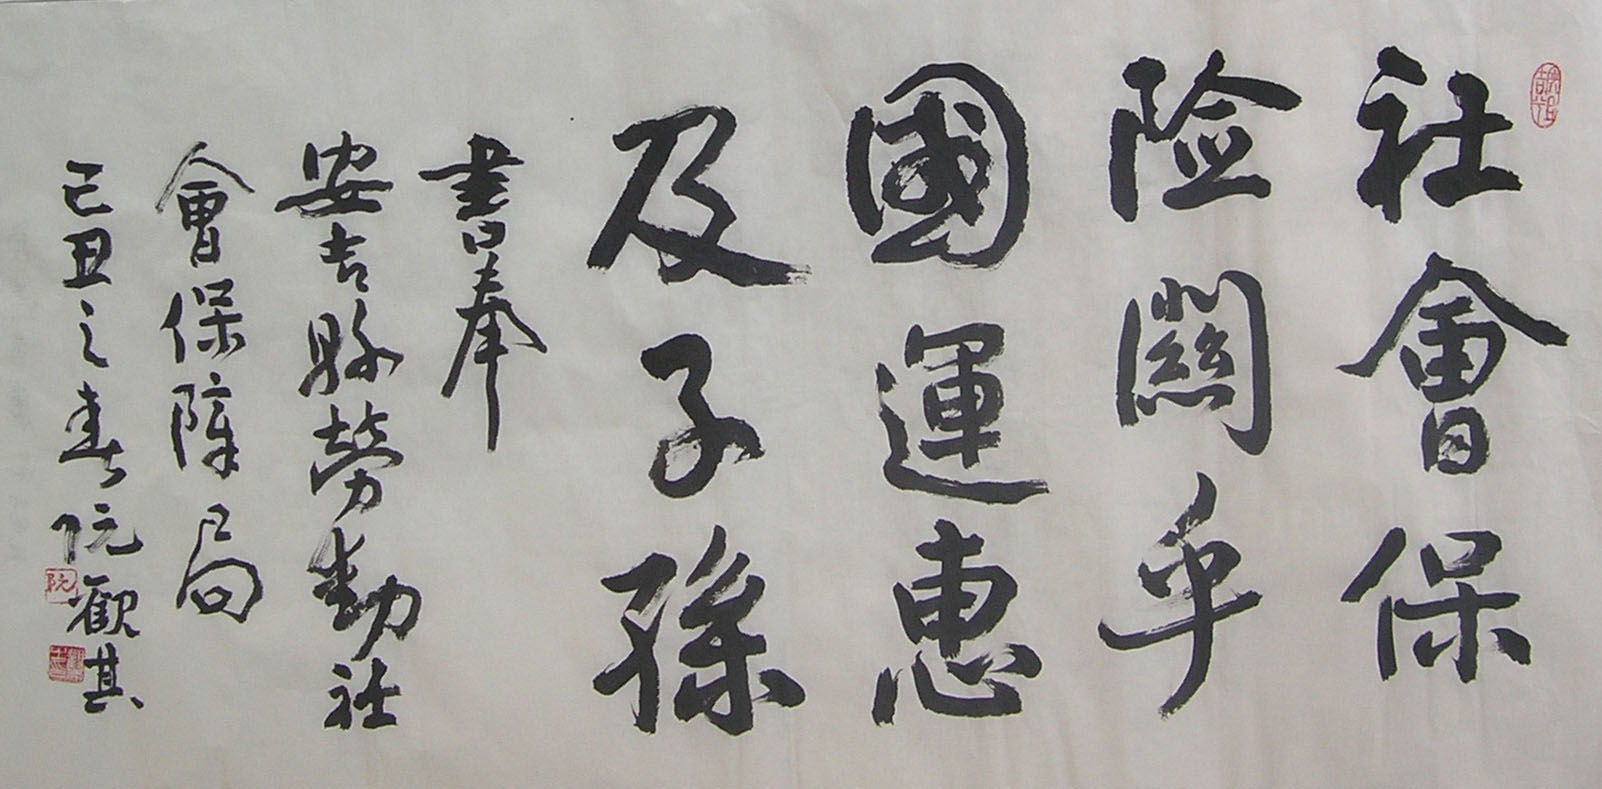 社會保
险關乎
國運惠
及子孫
書奉
安吉縣勞動社
會保障局
己丑之春阮觀其
阮